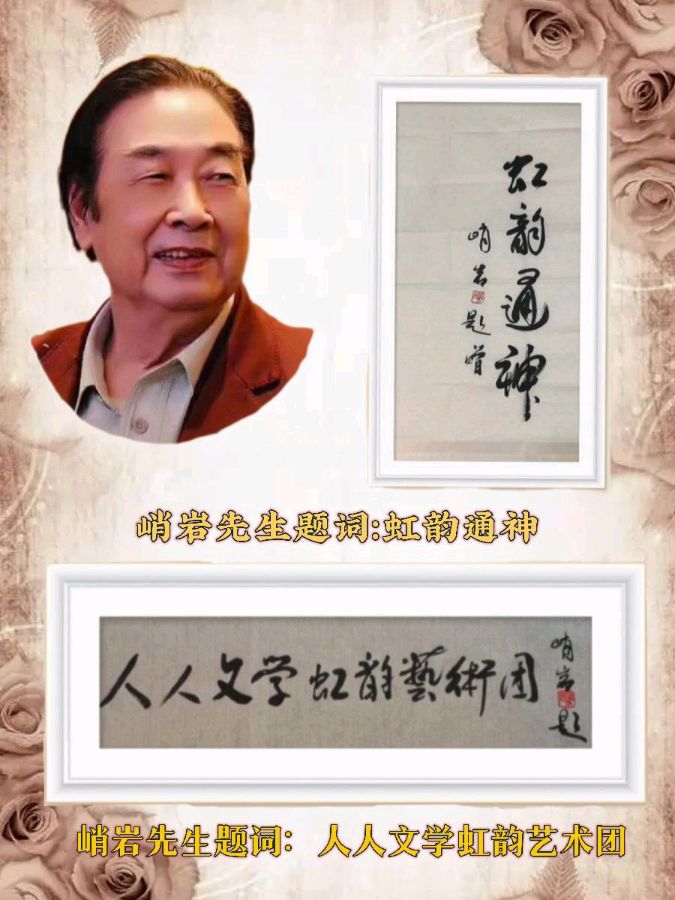 虹韵通神
峭岩题
峭岩先生题词:虹韵通神
人人文学虹韵藝術团
峭岩题
峭岩先生题词：人人文学虹韵艺术团